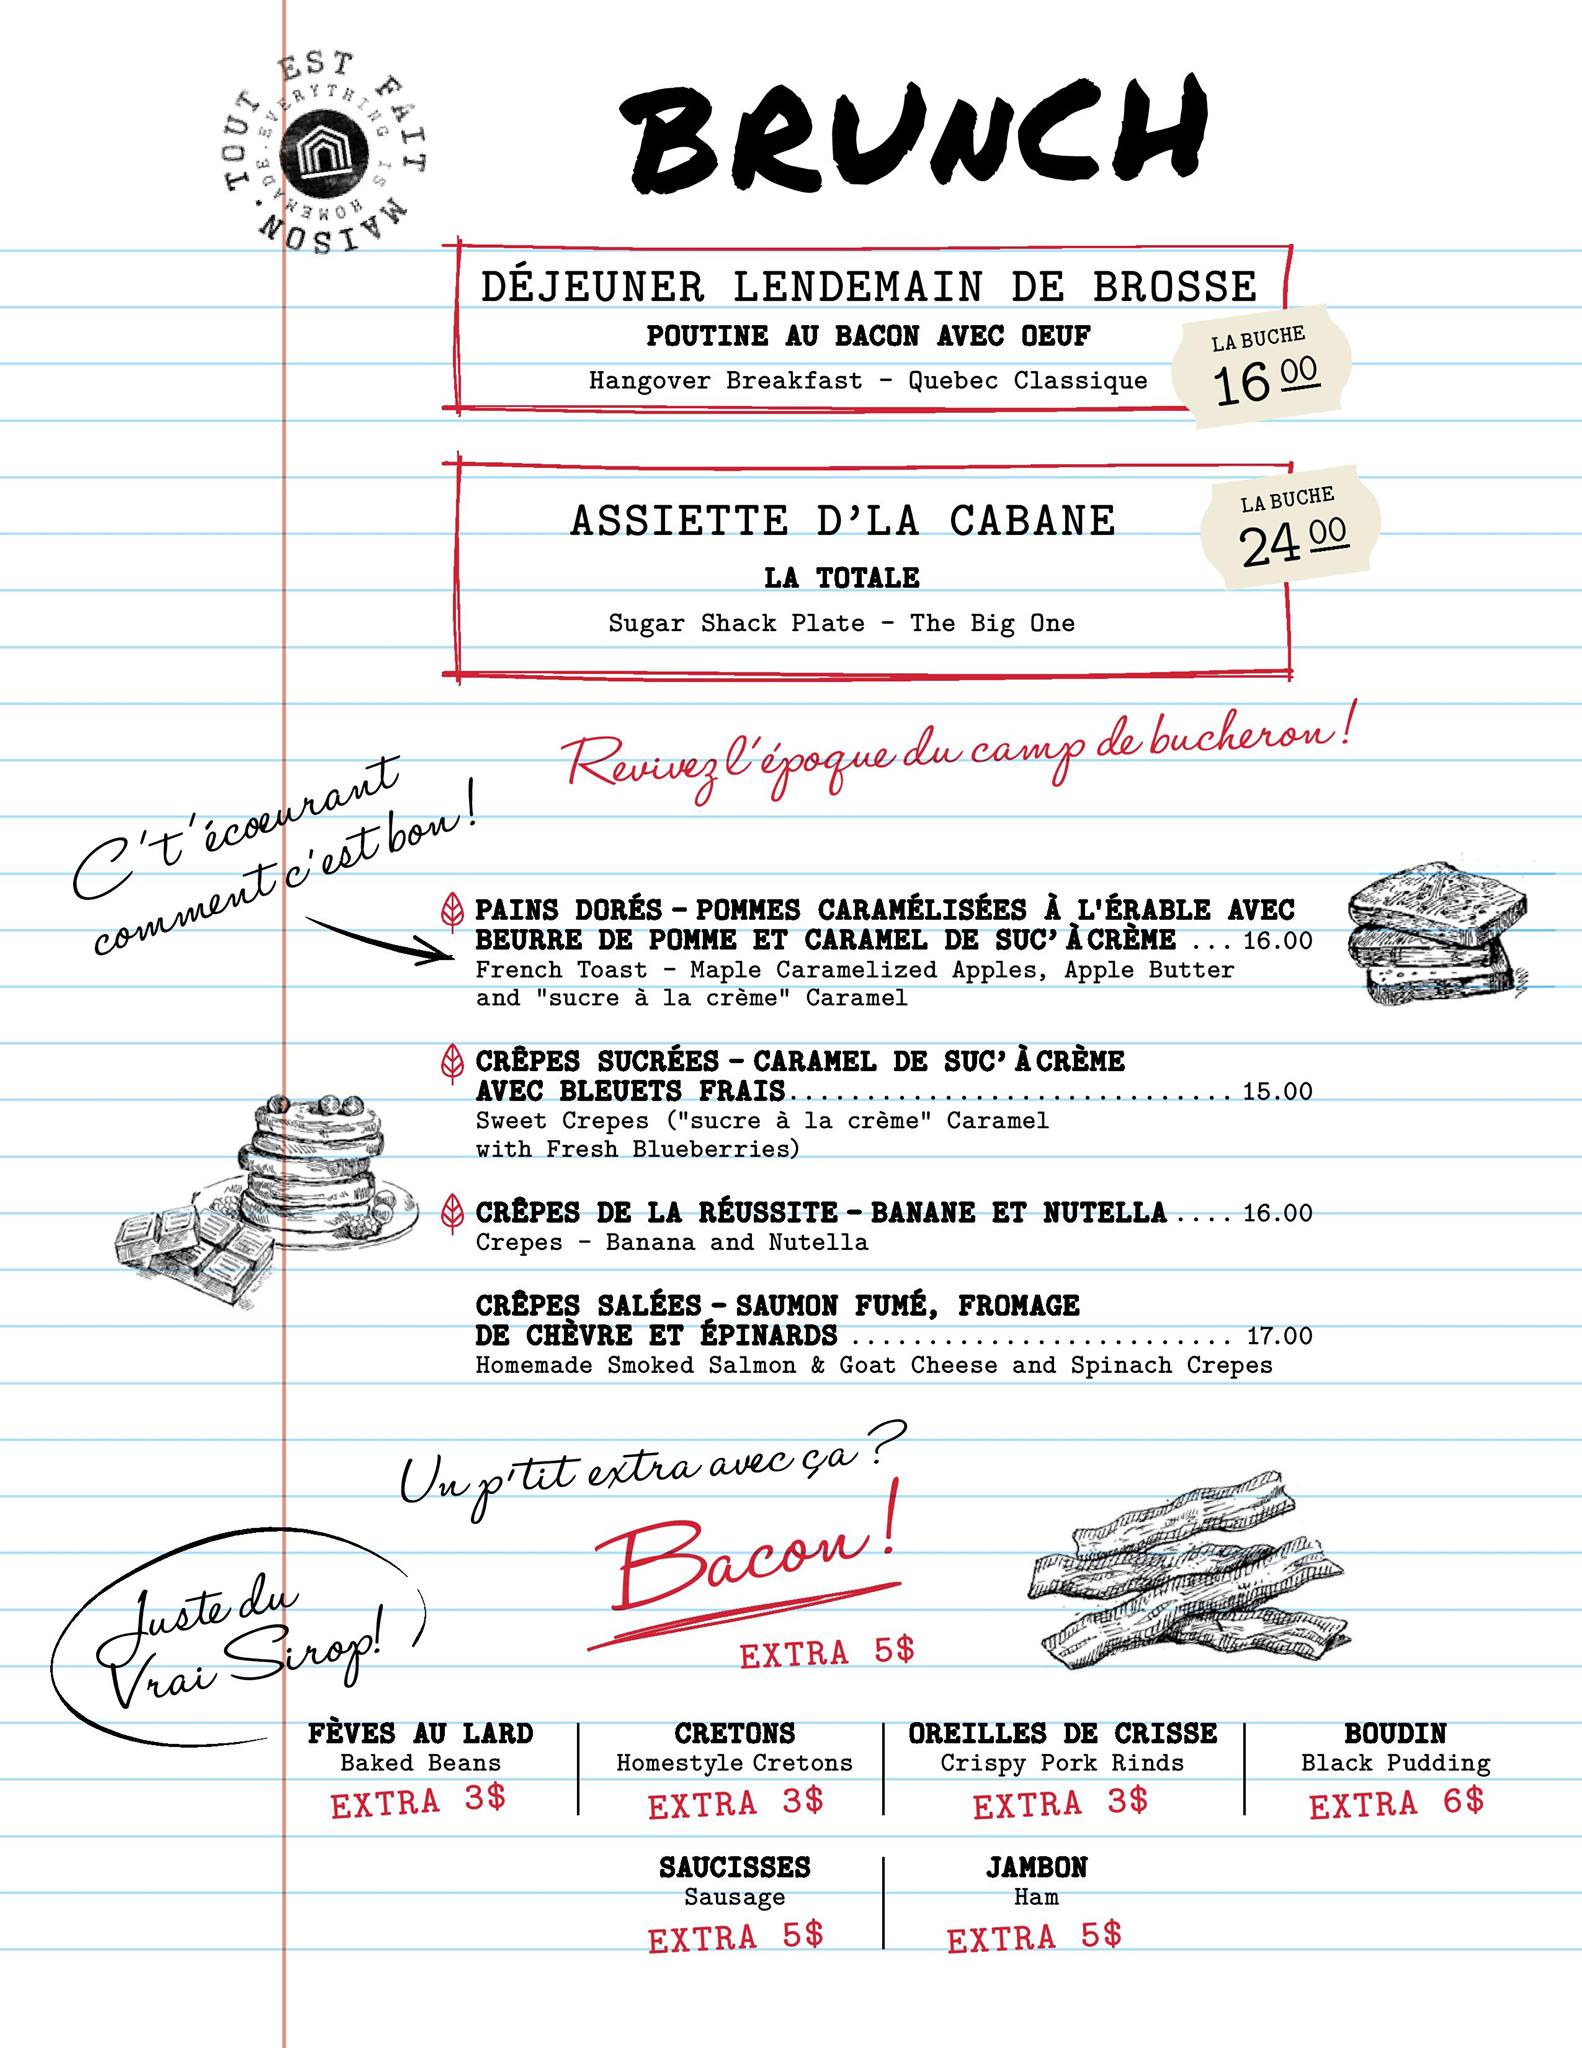 TOUT EST FAIT MAISON.
EVERYTHING IS HOMEMADE.
BRUNCH
DÉJEUNER LENDEMAIN DE BROSSE
POUTINE AU BACON AVEC OEUF
Hangover Breakfast - Quebec Classique
LA BUCHE
16 00
ASSIETTE D'LA CABANE
LA TOTALE
Sugar Shack Plate - The Big One
LA BUCHE
24 00
Revivez l'époque du camp de bucheron!
C't'écœurant
comment c'est bon!
PAINS DORÉS - POMMES CARAMÉLISÉES À L'ÉRABLE AVEC
BEURRE DE POMME ET CARAMEL DE SUC' À CRÈME ... 16.00
French Toast - Maple Caramelized Apples, Apple Butter
and "sucre à la crème" Caramel
CRÊPES SUCRÉES - CARAMEL DE SUC' À CRÈME
AVEC BLEUETS FRAIS............................ 15.00
Sweet Crepes ("sucre à la crème" Caramel
with Fresh Blueberries)
CRÊPES DE LA RÉUSSITE - BANANE ET NUTELLA .... 16.00
Crepes - Banana and Nutella
CRÊPES SALÉES - SAUMON FUMÉ, FROMAGE
DE CHÈVRE ET ÉPINARDS ........................ 17.00
Homemade Smoked Salmon & Goat Cheese and Spinach Crepes
Un p'tit extra avec ça?
Bacon!
EXTRA 5$
Juste du
Vrai Sirop!
FÈVES AU LARD
Baked Beans
EXTRA 3$
CRETONS
Homestyle Cretons
EXTRA 3$
OREILLES DE CRISSE
Crispy Pork Rinds
EXTRA 3$
BOUDIN
Black Pudding
EXTRA 6$
SAUCISSES
Sausage
EXTRA 5$
JAMBON
Ham
EXTRA 5$